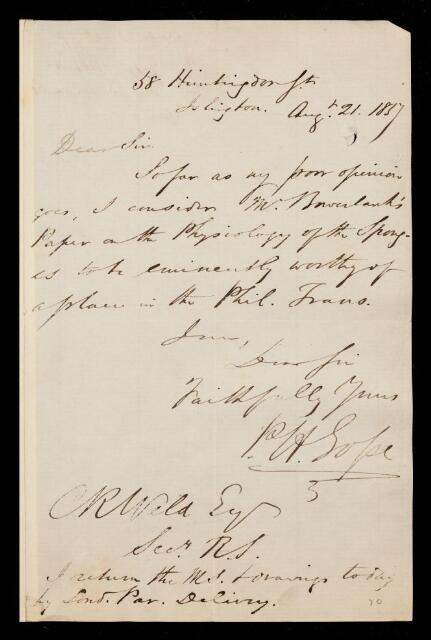 58 Huntingdon St.
Islington. Augt. 21. 1857
Dear Sir
So far as my poor opinion
goes, I consider Mr. Bowerbank's
Paper on the Physiology of the Spong-
es to be eminently worthy of
a place in the Phil. Trans.
I am,
Dear Sir
Faithfully Yours
P. H. Gosse
C R Weld Esq
Secy R.S.
I return the M.S. & drawings to day
by Lond. Par. Delivery.